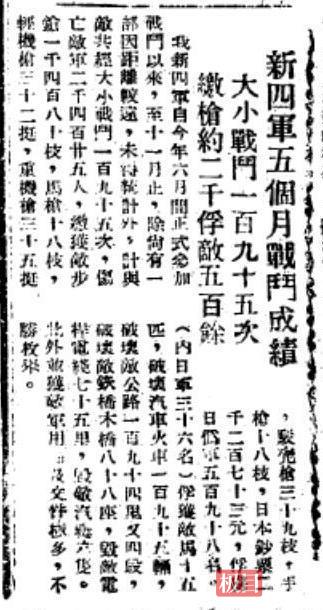 新四軍五個月戰鬥成績
大小戰鬥一百九十五次
繳槍約二千俘敵五百餘
我新四軍自今年六月開正式參加
戰鬥以來，至十一月止，除尙有一
部因距離較遠，未得統計外，計與
敵共經大小戰鬥一百九十五次，傷
亡敵軍二千四百廿五人，繳獲敵步
槍一千四百八十枝，馬槍十八枝，
輕機槍三十二挺，重機槍三十五挺
，駁壳槍三十九枝，手
槍十八枝，日本鈔票二
千二百七十三元，俘
日偽軍五百九十八名，
（內日軍三十六名）俘獲敵馬十五
匹，破壞汽車火車一百九十五輛，
破壞敵公路一百九十四里又四段，
破壞敵鐵橋木橋八十八座，毀敵電
桿電綫七十五里，毀敵汽艇六隻。
此外並獲敵軍用及文件極多，不
勝枚舉。
极目